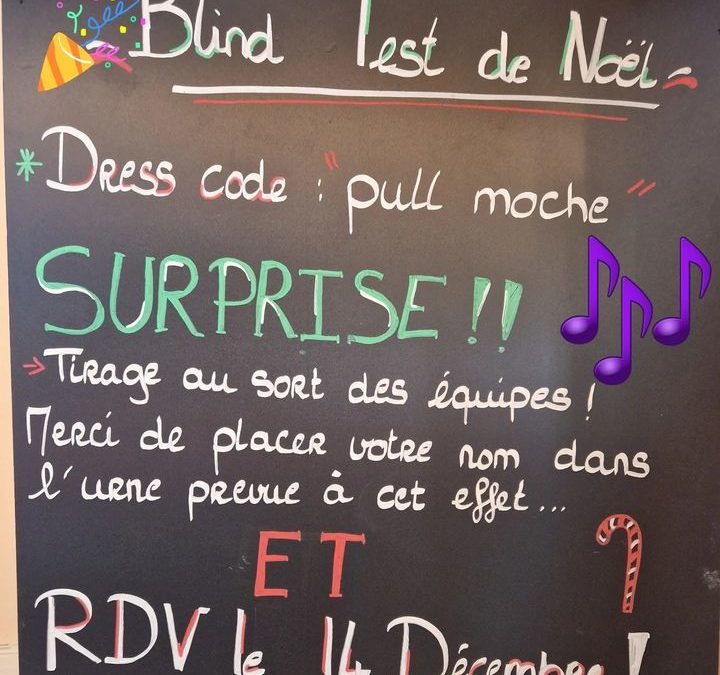 Blind Test de Noël
* Dress code : "pull moche"
SURPRISE !!
→ Tirage au sort des équipes !
Merci de placer votre nom dans
l'urne prevue à cet effet...
ET
RDV le 14 Décembre !